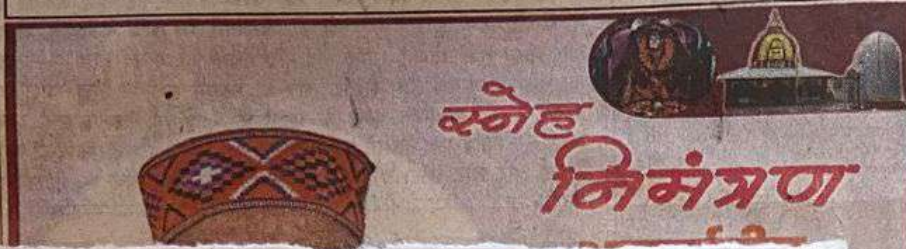 स्नेह
निमंत्रण